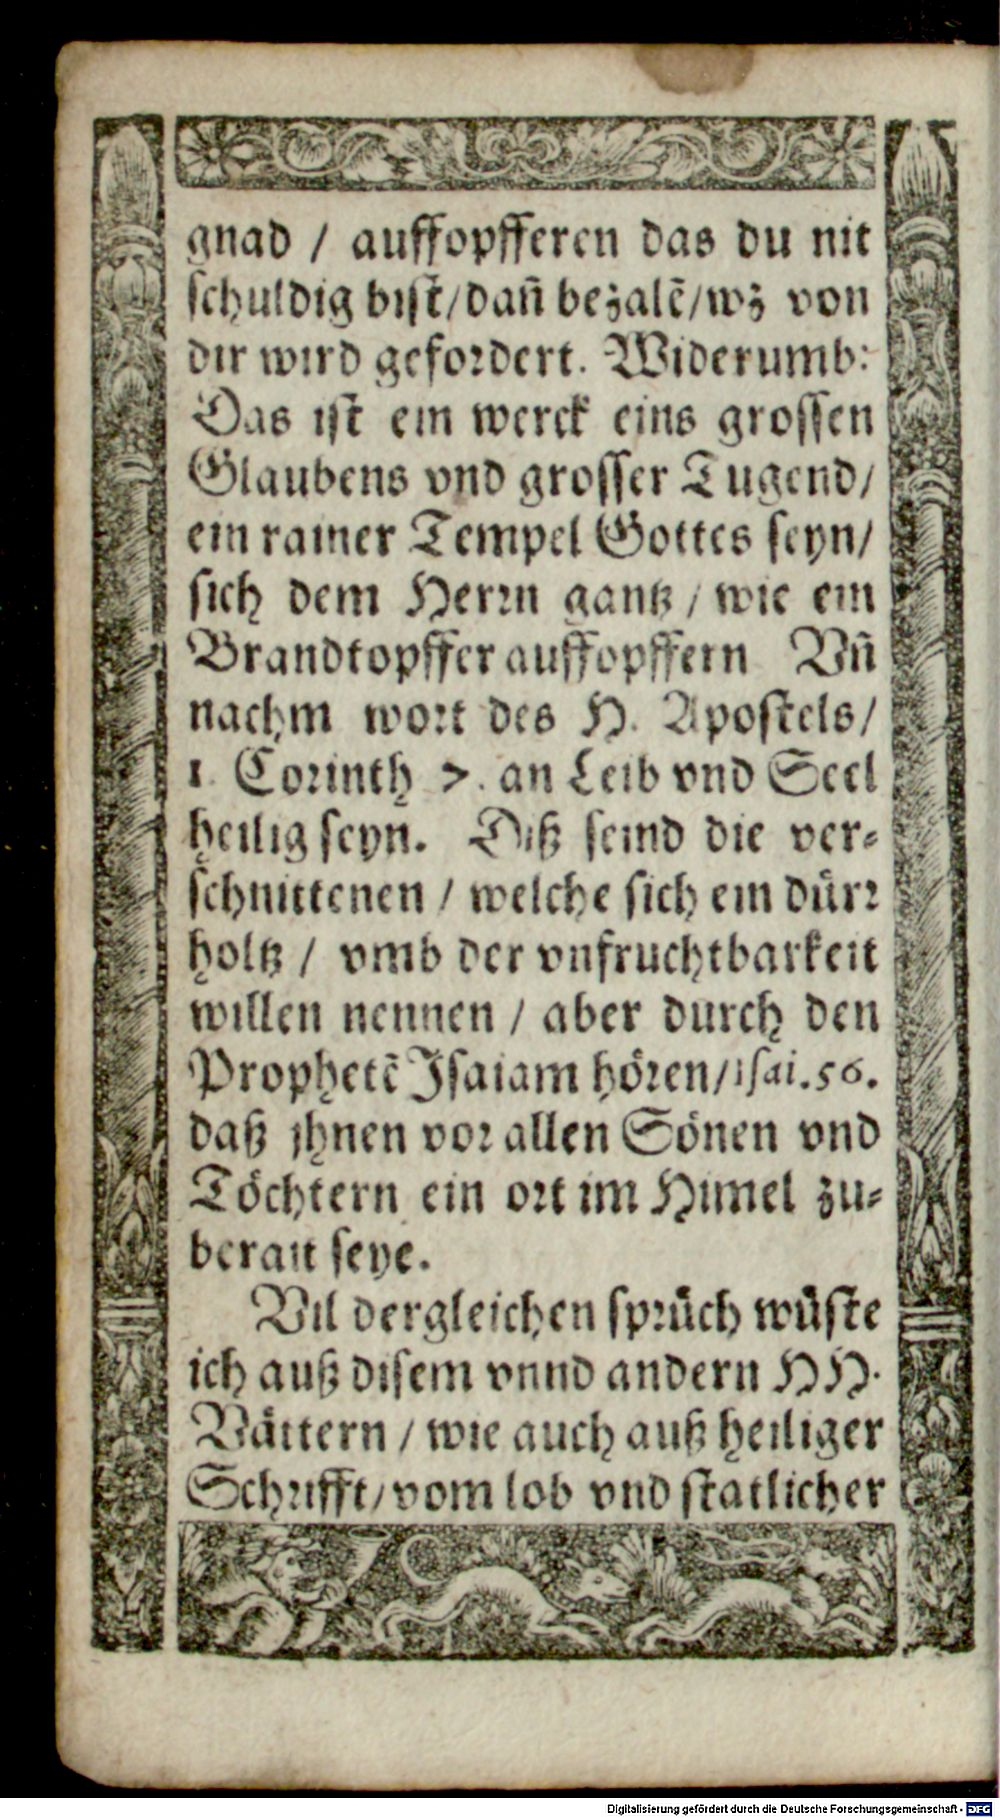 gnad / auffopfferen das du nit
schuldig bist/dañ bezalē/wz von
dir wird gefordert. Widerumb:
Das ist ein werck eins grossen
Glaubens vnd grosser Tugend/
ein rainer Tempel Gottes seyn/
sich dem Herrn gantz / wie ein
Brandtopffer auffopffern Vñ
nachm wort des H. Apostels/
1. Corinth 7. an Leib vnd Seel
heilig seyn. Diß seind die ver⸗
schnittenen / welche sich ein dürr
holtz / vmb der vnfruchtbarkeit
willen nennen / aber durch den
Prophetē Isaiam hören/isai.56.
daß jhnen vor allen Sönen vnd
Töchtern ein ort im Himel zu⸗
berait seye.
Vil dergleichen sprüch wüste
ich auß disem vnnd andern HH.
Vättern / wie auch auß heiliger
Schrifft/vom lob vnd statlicher
Digitalisierung gefördert durch die Deutsche Forschungsgemeinschaft - DFG